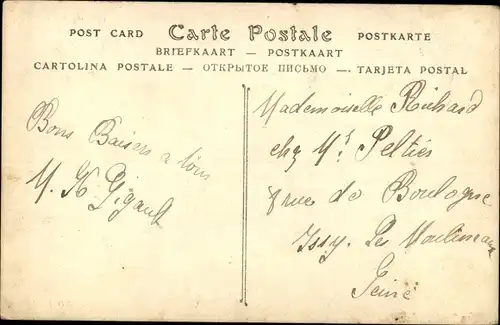 POST CARD Carte Postale POSTKARTE
BRIEFKAART — POSTKAART
CARTOLINA POSTALE — ОТКРЫТОЕ ПИСЬМО — TARJETA POSTAL
Bons Baisers a tous
M. K Gigault
Mademoiselle Richard
chez Mr Peltier
rue de Boulogne
Issy. Les Moulineaux
Seine